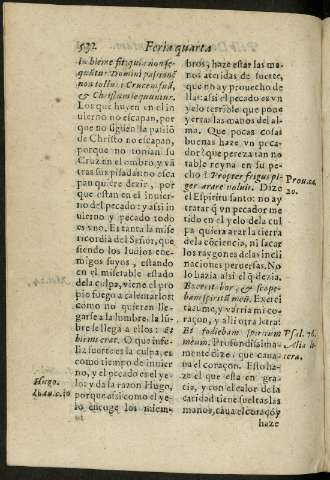 532 Feria quarta
In hieme fit, quia non se-
quitur Domini passionē
non tollit Crucem suā,
& Christum sequuntur.
Los que huyen en el in
uierno no escapan, por
que no siguen la passiō
de Christo no escapan,
porque no toman su
Cruz en el ombro y vā
tras sus pisadas: no esca
pan quiere dezir, por
que estan en el inuier
no del pecado: y assi in
uierno y pecado todo
es vno. Es tanta la mise
ricordia del Señor, que
siendo los Iudios ene-
migos suyos, estando
en el miserable estado
de la culpa, viene el pro
pio fuego a calentarlos:
como no quieren lle-
garse a la lumbre, la lū-
bre se llega a ellos: Et
hiems erat. O que infe-
liz suerte es la culpa, es
como tiempo de inuier
no, y el pecado es el ye-
lo: y da la razon Hugo,
porque assi como el ye-
lo encoge los miem-
Hugo.
bros, haze estar las ma-
nos ateridas de suerte,
que no ay prouecho de
lla: assi el pecado es vn
yelo terrible que pone
yertas las manos del al-
ma. Que pocas cosas
buenas haze vn peca-
dor que pereza tan no
table reyna en su pe-
cho? Propter frigus pi-
ger arare noluit. Dize
el Espiritu santo: no ay
tratar q̃ vn pecador me
tido en el yelo de la cul
pa quiera arar la tierra
de la cōciencia, ni sacar
los raygones de las incli
naciones peruersas. No
lo hazia assi el q̃ dezia.
Exercitabor, & scope-
bam spiritū meū. Exerci
tauame, y varria mi co-
raçon, y alli otra letra:
Et fodiebam spiritum
meum. Profundissima-
mente dize, que caua-
ua el coraçon. Esto ha-
ze el que esta en gra-
cia, y con el calor de la
caridad tiene sueltas las
manos, caua el coraçō y
haze
Prou. ca.
20.
Psal. 76.
Alia li-
tera.